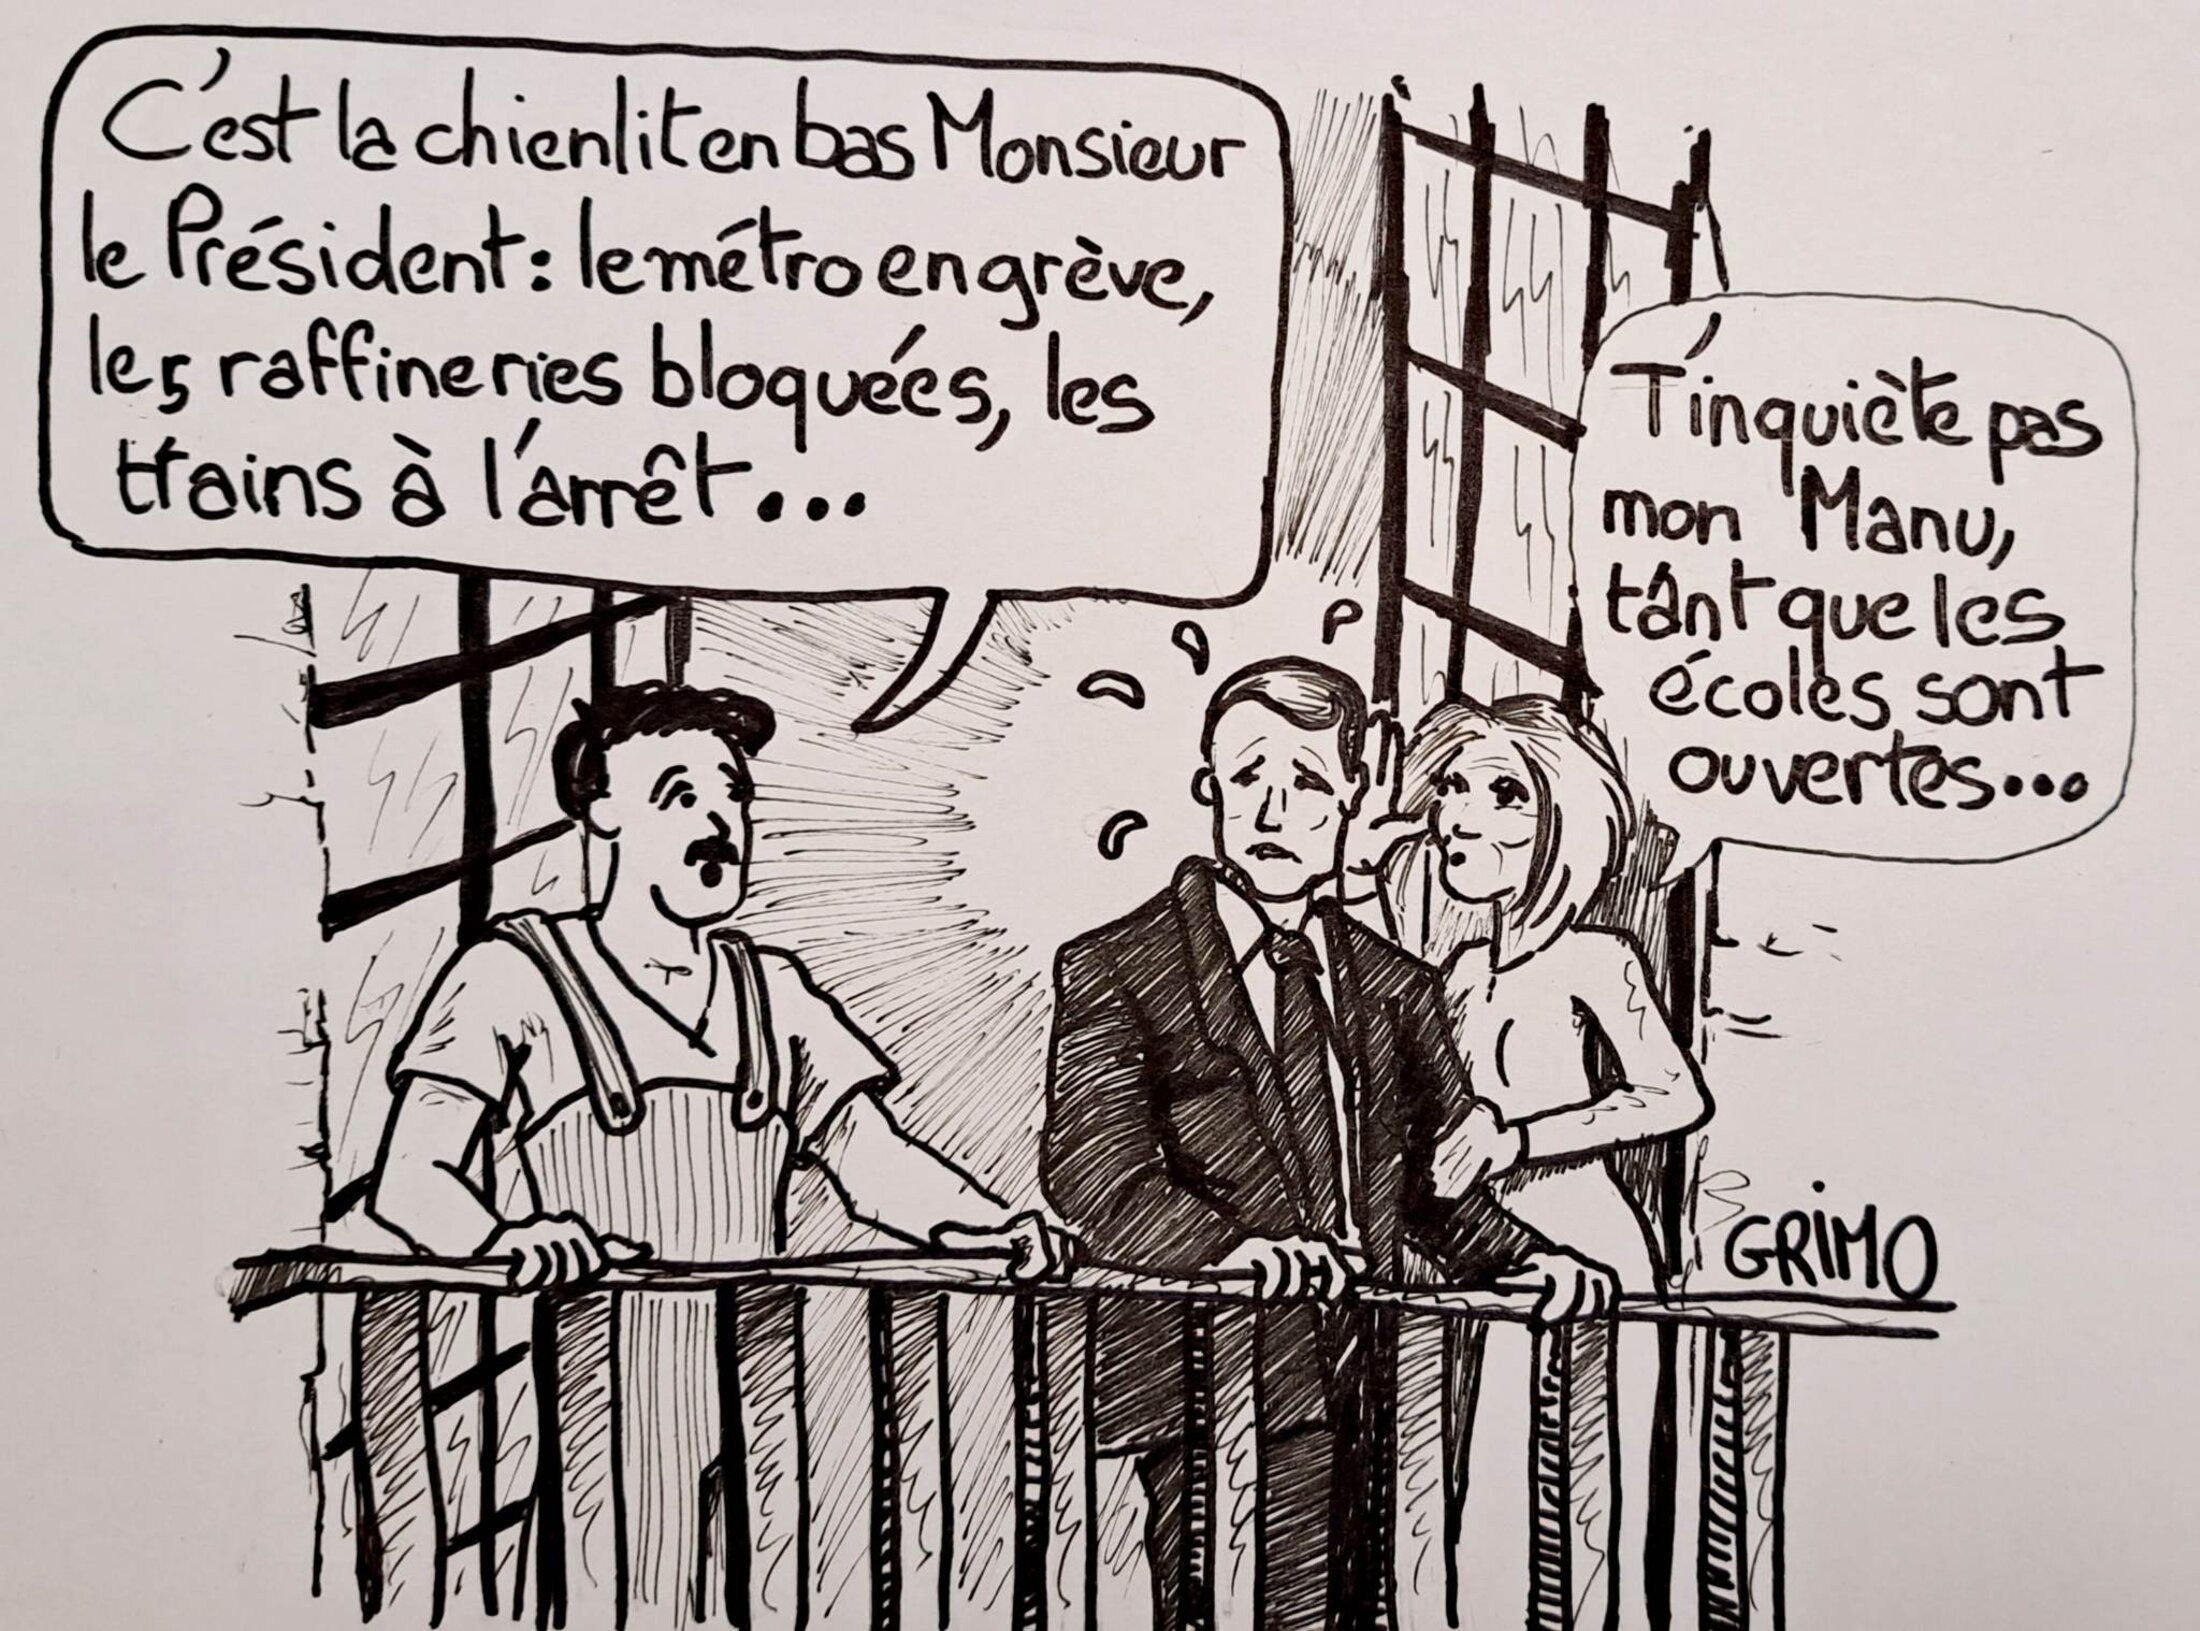 C'est la chienlit en bas Monsieur
le Président : le métro en grève,
les raffineries bloquées, les
trains à l'arrêt...
T'inquiète pas
mon Manu,
tant que les
écoles sont
ouvertes...
GRIMO